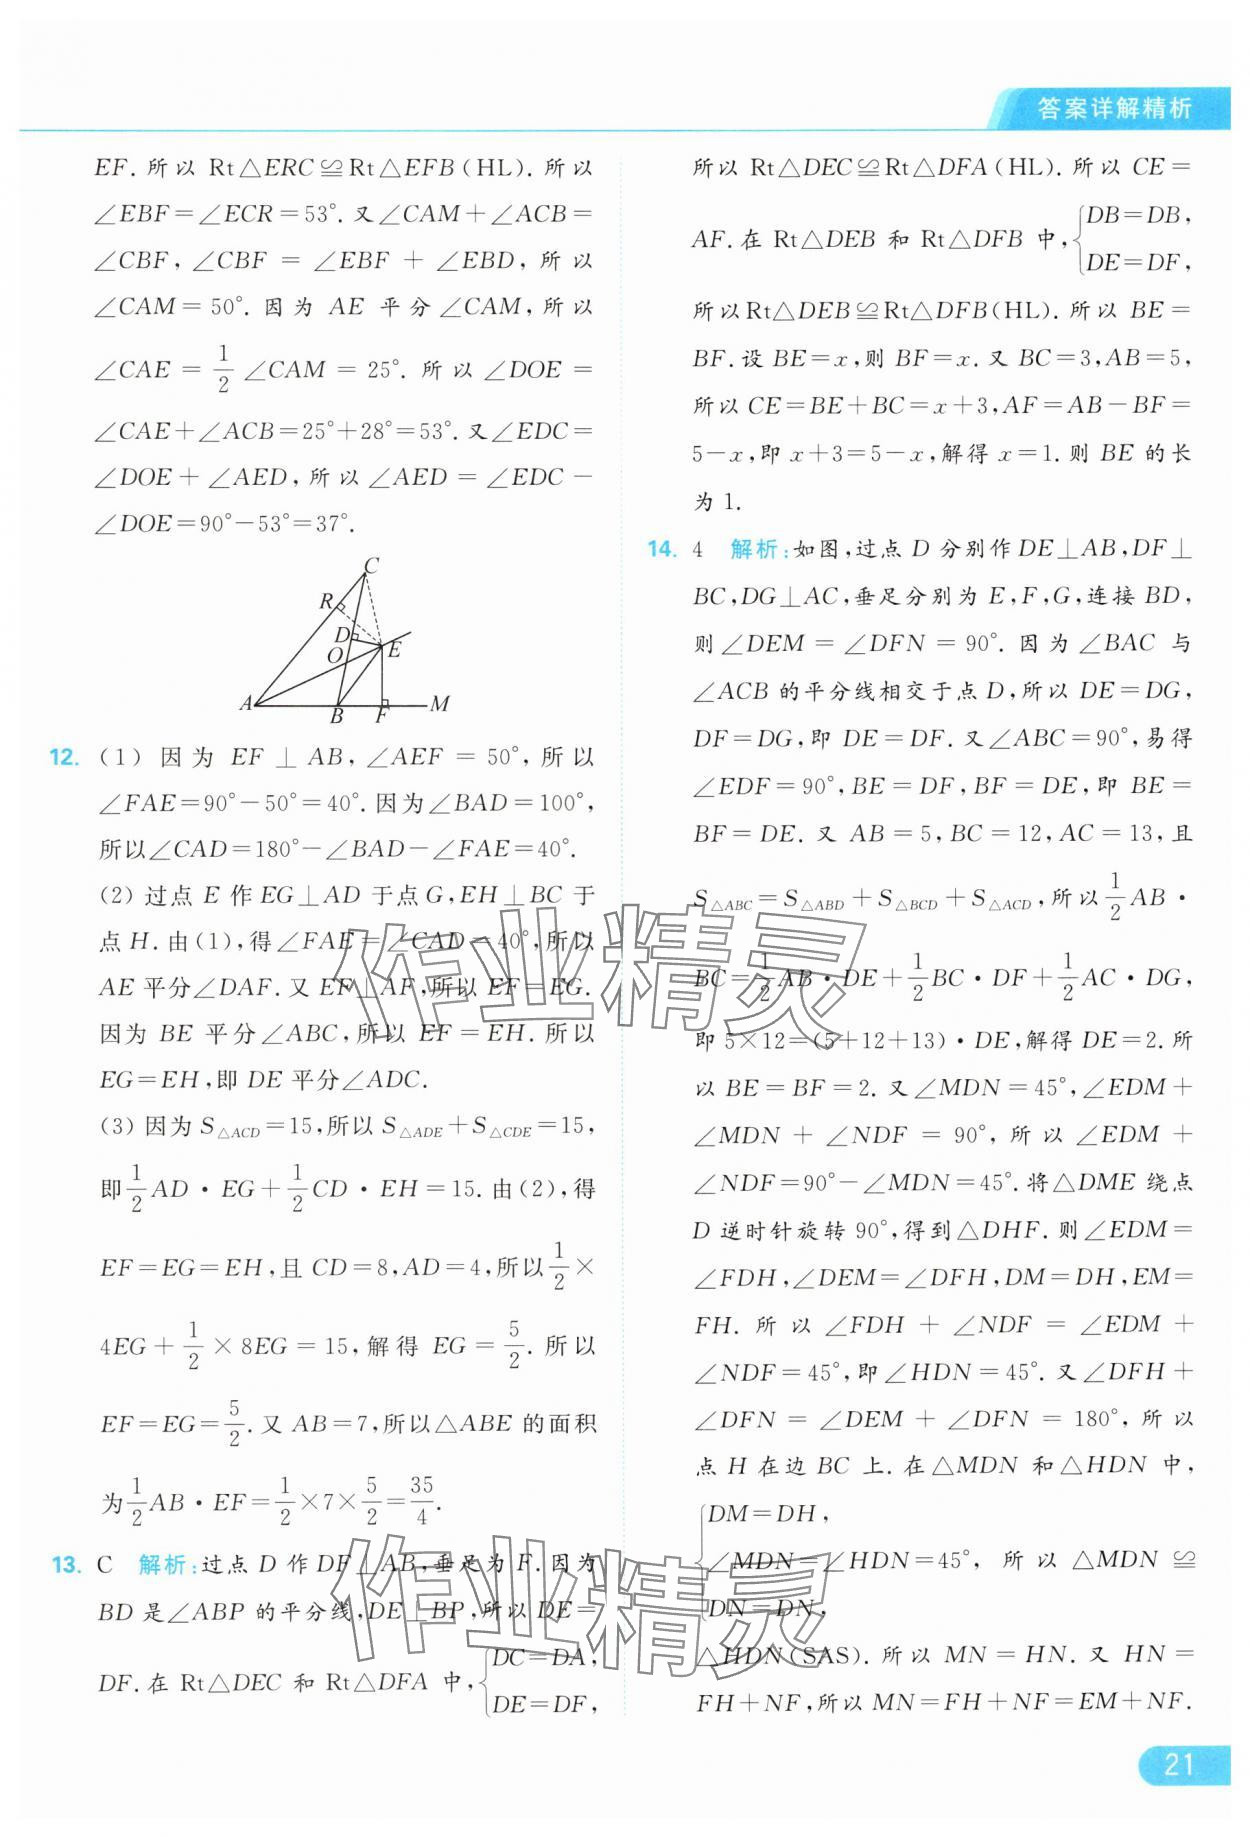 答案详解精析
EF.所以 Rt△ERC≌Rt△EFB(HL).所以
∠EBF=∠ECR=53°.又∠CAM+∠ACB=
∠CBF,∠CBF = ∠EBF + ∠EBD,所以
∠CAM=50°.因为 AE 平分∠CAM,所以
∠CAE = 1/2 ∠CAM = 25°.所以∠DOE =
∠CAE+∠ACB=25°+28°=53°.又∠EDC=
∠DOE+∠AED,所以∠AED=∠EDC-
∠DOE=90°-53°=37°.
C
R
D
O
E
A
B
F
M
12. (1) 因为 EF ⊥ AB,∠AEF = 50°,所以
∠FAE=90°-50°=40°.因为∠BAD=100°,
所以∠CAD=180°-∠BAD-∠FAE=40°.
(2) 过点 E 作 EG⊥AD 于点 G,EH⊥BC 于
点 H.由(1),得∠FAE=∠CAD=40°,所以
AE 平分∠DAF.又 EF⊥AF,所以 EF=EG.
因为 BE 平分∠ABC,所以 EF=EH.所以
EG=EH,即 DE 平分∠ADC.
(3) 因为 S△ACD=15,所以 S△ADE+S△CDE=15,
即1/2AD·EG+1/2CD·EH=15.由(2),得
EF=EG=EH,且 CD=8,AD=4,所以1/2×
4EG+1/2×8EG=15,解得 EG=5/2.所以
EF=EG=5/2.又 AB=7,所以△ABE 的面积
为1/2AB·EF=1/2×7×5/2=35/4.
13. C 解析:过点 D 作 DF⊥AB,垂足为 F.因为
BD 是∠ABP 的平分线,DE⊥BP,所以 DE=
DF.在 Rt△DEC 和 Rt△DFA 中,{DC=DA,
DE=DF,
所以 Rt△DEC≌Rt△DFA(HL).所以 CE=
AF.在 Rt△DEB 和 Rt△DFB 中,{DB=DB,
DE=DF,
所以Rt△DEB≌Rt△DFB(HL).所以 BE=
BF.设 BE=x,则 BF=x.又 BC=3,AB=5,
所以 CE=BE+BC=x+3,AF=AB-BF=
5-x,即 x+3=5-x,解得 x=1.则 BE 的长
为 1.
14. 4 解析:如图,过点 D 分别作 DE⊥AB,DF⊥
BC,DG⊥AC,垂足分别为 E,F,G,连接 BD,
则∠DEM=∠DFN=90°.因为∠BAC 与
∠ACB 的平分线相交于点 D,所以 DE=DG,
DF=DG,即 DE=DF.又∠ABC=90°,易得
∠EDF=90°,BE=DF,BF=DE,即 BE=
BF=DE.又 AB=5,BC=12,AC=13,且
S△ABC=S△ABD+S△BCD+S△ACD,所以1/2AB·
BC=1/2AB·DE+1/2BC·DF+1/2AC·DG,
即 5×12=(5+12+13)·DE,解得 DE=2.所
以 BE=BF=2.又∠MDN=45°,∠EDM+
∠MDN+∠NDF=90°,所以∠EDM+
∠NDF=90°-∠MDN=45°.将△DME 绕点
D 逆时针旋转 90°,得到△DHF.则∠EDM=
∠FDH,∠DEM=∠DFH,DM=DH,EM=
FH.所以∠FDH+∠NDF=∠EDM+
∠NDF=45°,即∠HDN=45°.又∠DFH+
∠DFN=∠DEM+∠DFN=180°,所以
点 H 在边 BC 上.在△MDN 和△HDN 中,
{DM=DH,
∠MDN=∠HDN=45°, 所以△MDN≌
DN=DN,
△HDN(SAS).所以 MN=HN.又 HN=
FH+NF,所以 MN=FH+NF=EM+NF.
21
作业精灵
作业精灵